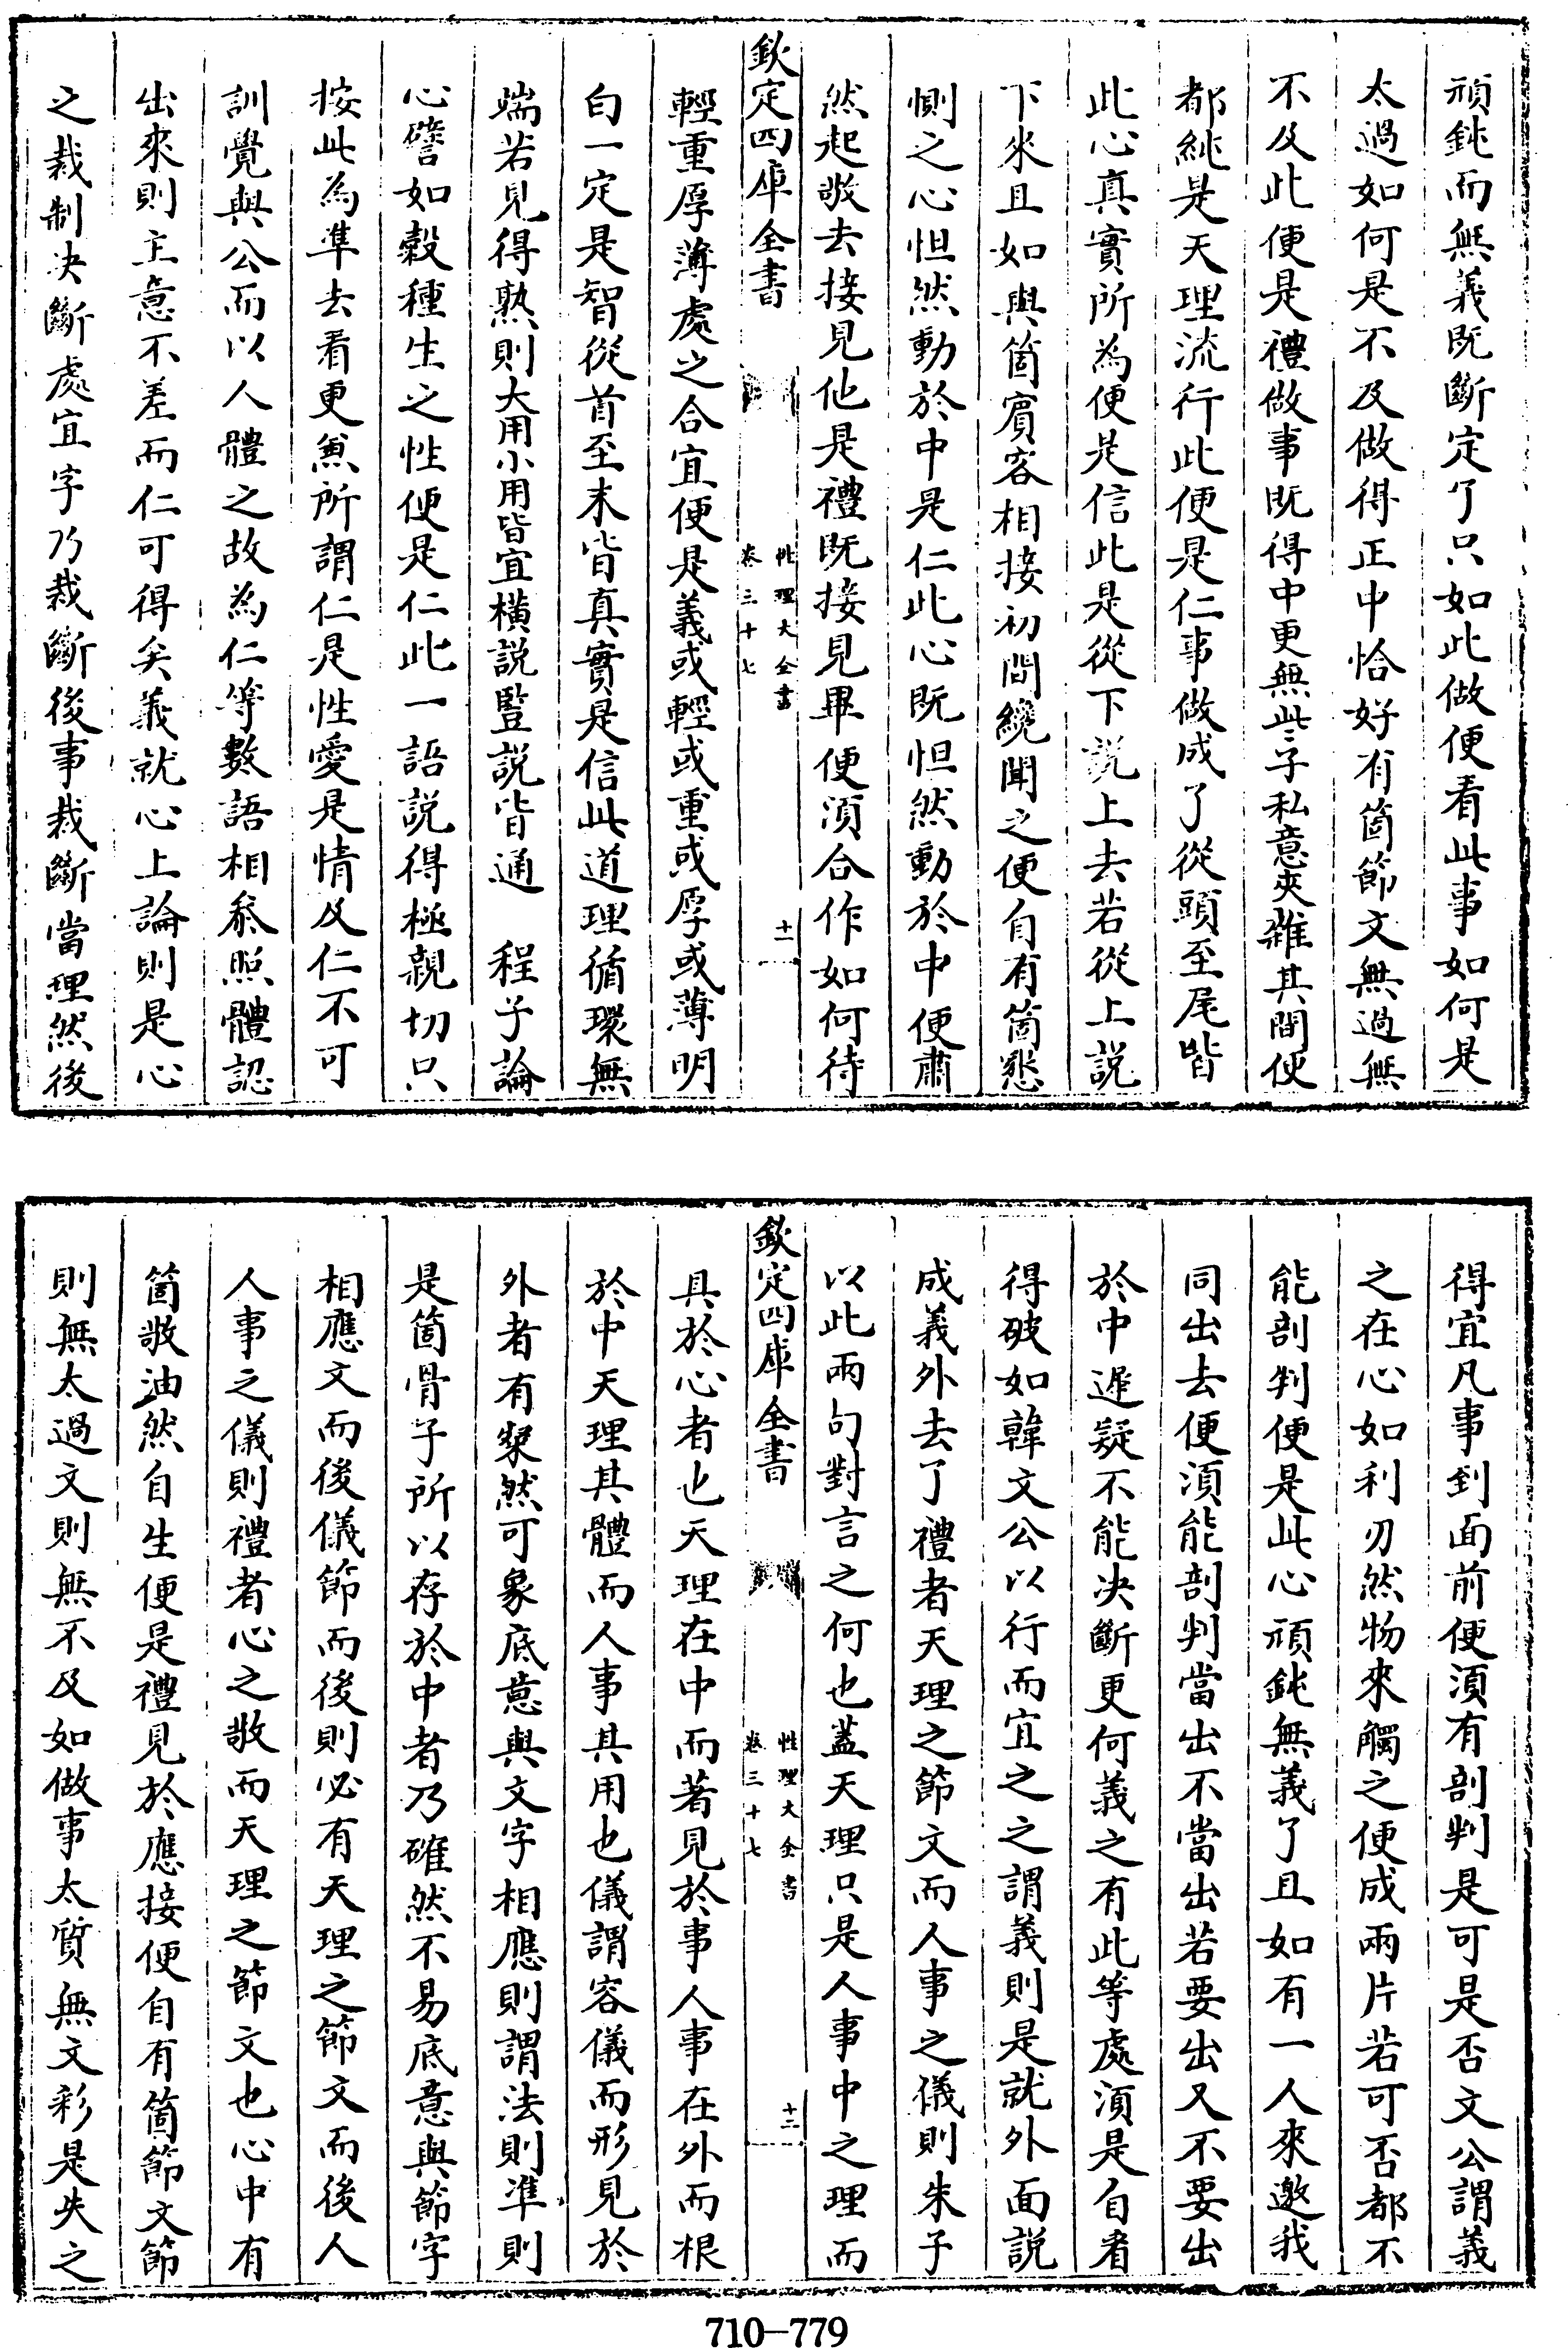 頑鈍而無義既斷定了只如此做便看此事如何是
太過如何是不及做得正中恰好有箇節文無過無
不及此便是禮做事既得中更無些子私意夾雜其間便
都純是天理流行此便是仁事做成了從頭至尾皆
此心真實所為便是信此是從下說上去若從上說
下來且如與箇賔客相接初間纔聞之便自有箇懇
惻之心怛然動於中是仁此心既怛然動於中便肅
然起敬去接見他是禮既接見畢便湏合作如何待
欽定四庫全書
性理大全書
卷三十七
十一
輕重厚薄處之合宜便是義或輕或重或厚或薄明
白一定是智從首至末皆真實是信此道理循環無
端若見得熟則大用小用皆宜橫說豎說皆通　程子論
心譬如穀種生之性便是仁此一語說得極親切只
按此為準去看更兼所謂仁是性愛是情及仁不可
訓覺與公而以人體之故為仁等數語相叅照體認
出來則主意不差而仁可得矣義就心上論則是心
之裁制决斷處宜字乃裁斷後事裁斷當理然後
得宜凡事到面前便湏有剖判是可是否文公謂義
之在心如利刃然物來觸之便成兩片若可否都不
能剖判便是此心頑鈍無義了且如有一人來邀我
同出去便湏能剖判當出不當出若要出又不要出
於中遲疑不能决斷更何義之有此等處湏是自看
得破如韓文公以行而宜之之謂義則是就外面說
成義外去了禮者天理之節文而人事之儀則朱子
以此兩句對言之何也蓋天理只是人事中之理而
欽定四庫全書
性理大全書
卷三十七
十二
具於心者也天理在中而著見於事人事在外而根
於中天理其體而人事其用也儀謂容儀而形見於
外者有粲然可象底意與文字相應則謂法則準則
是箇骨子所以存於中者乃確然不易底意與節字
相應文而後儀節而後則必有天理之節文而後人
人事之儀則禮者心之敬而天理之節文也心中有
箇敬油然自生便是禮見於應接便自有箇節文節
則無太過文則無不及如做事太質無文彩是失之
710—779